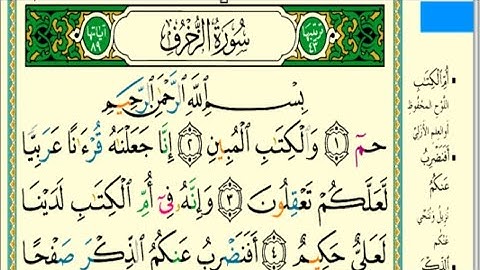 ترتيبها ٤٣ سُورَةُ الزُّخْرُفِ آياتها ٨٩
بِسْمِ ٱللَّهِ ٱلرَّحْمَٰنِ ٱلرَّحِيمِ
حمٓ ١ وَٱلْكِتَٰبِ ٱلْمُبِينِ ٢ إِنَّا جَعَلْنَٰهُ قُرْءَٰنًا عَرَبِيًّا
لَّعَلَّكُمْ تَعْقِلُونَ ٣ وَإِنَّهُۥ فِىٓ أُمِّ ٱلْكِتَٰبِ لَدَيْنَا
لَعَلِىٌّ حَكِيمٌ ٤ أَفَنَضْرِبُ عَنكُمُ ٱلذِّكْرَ صَفْحًا
أُمِّ الْكِتَٰبِ
اللَّوْحِ المَحْفُوظِ
أو العِلم الأَزَلِيّ
أَفَنَضْرِبُ
عَنكُمُ
نُزِيلُ ونُنَحِّي
عَنكُم
الذِّكْرَ